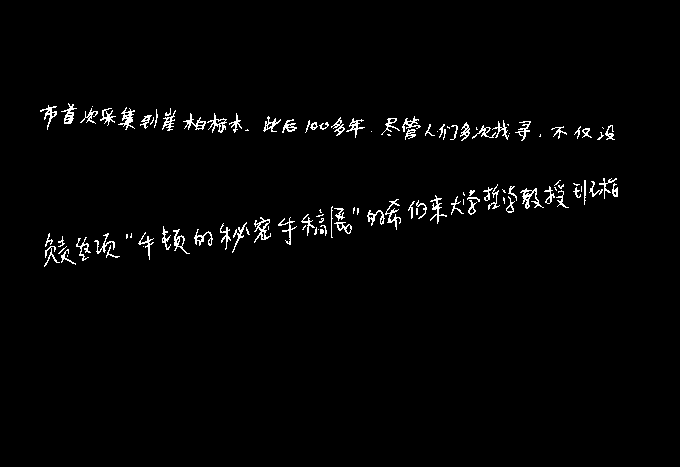 市首次采集到崖柏标本。此后100多年，尽管人们多次找寻，不仅没
负责这项“牛顿的秘密手稿展”的希伯来大学哲学教授班指